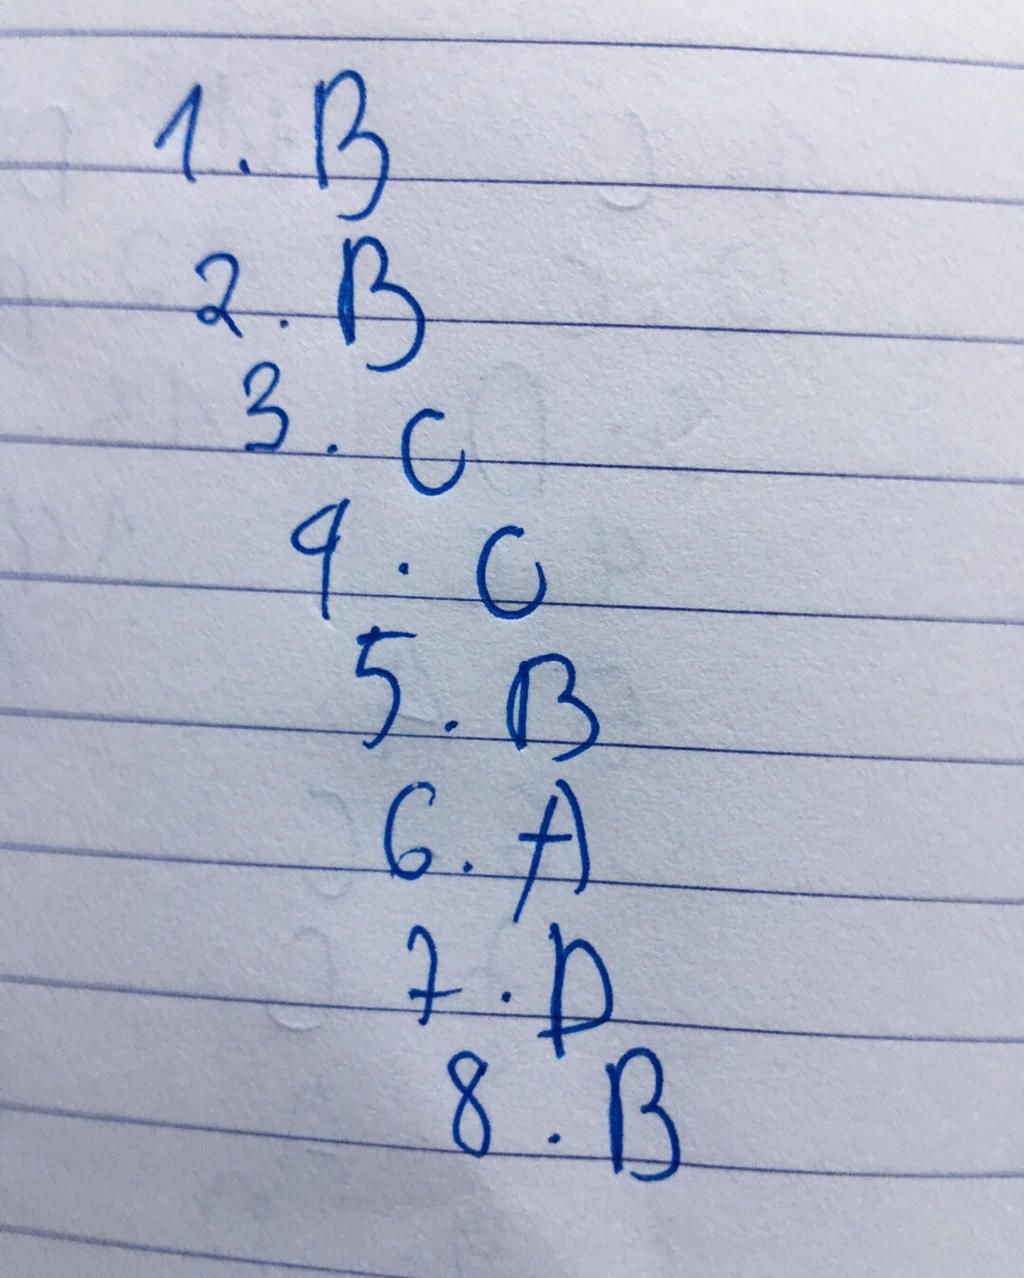 1. B
2. B
3. C
4. C
5. B
6. A
7. D
8. B